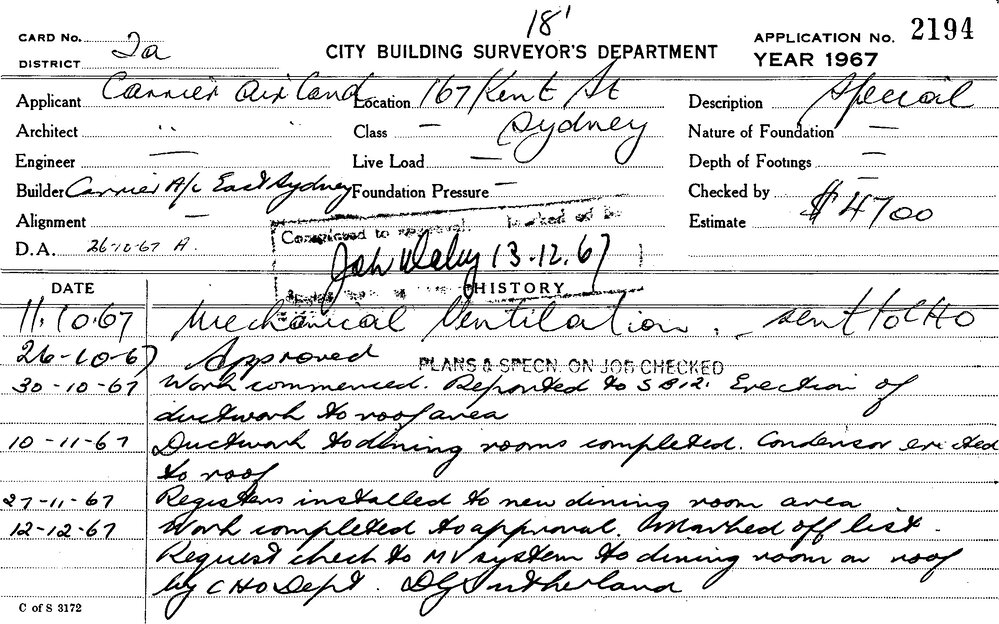 18'
CARD No.
DISTRICT 2a
CITY BUILDING SURVEYOR'S DEPARTMENT
APPLICATION No. 2194
YEAR 1967
Applicant Carrier Air Cond Location 167 Kent St Description Special
Architect " Class — Sydney Nature of Foundation —
Engineer — Live Load — Depth of Footings —
Builder Carrier A/c East Sydney Foundation Pressure — Checked by —
Alignment — Estimate $4700
D.A. 26-10-67 A.
Completed to approval. Marked off
13.12.67
DATE HISTORY
11.10.67 Mechanical Ventilation. sent to CHO
26-10-67 Approved PLANS & SPECN. ON JOB CHECKED
30-10-67 Work commenced. Reported to S B12. Erection of
ductwork to roof area
10-11-67 Ductwork to dining rooms completed. Condensor erected
to roof
27-11-67 Registers installed to new dining room area
12-12-67 Work completed to approval. Marked off list.
Request check to MV system to dining room on roof
by CHO Dept. DG Sutherland
C of S 3172